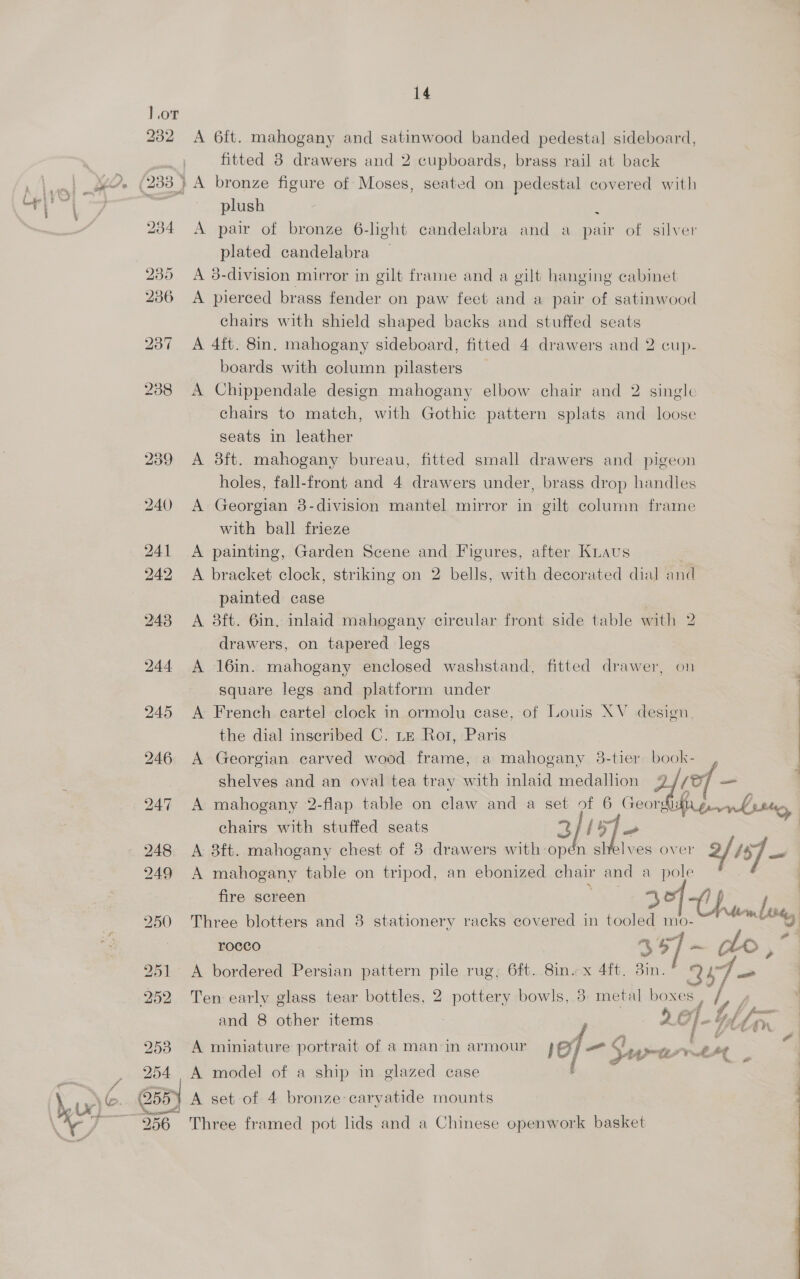 14
Lot
232 A 6ft. mahogany and satinwood banded pedestal sideboard,
fitted 3 drawers and 2 cupboards, brass rail at back
233 A bronze figure of Moses, seated on pedestal covered with
plush
234 A pair of bronze 6-light candelabra and a pair of silver
plated candelabra
235 A 3-division mirror in gilt frame and a gilt hanging cabinet
236 A pierced brass fender on paw feet and a pair of satinwood
chairs with shield shaped backs and stuffed seats
237 A 4ft. 8in. mahogany sideboard, fitted 4 drawers and 2 cup-
boards with column pilasters
238 A Chippendale design mahogany elbow chair and 2 single
chairs to match, with Gothic pattern splats and loose
seats in leather
239 A 3ft. mahogany bureau, fitted small drawers and pigeon
holes, fall-front and 4 drawers under, brass drop handles
240 A Georgian 3-division mantel mirror in gilt column frame
with ball frieze
241 A painting, Garden Scene and Figures, after Klaus
242 A bracket clock, striking on 2 bells, with decorated dial and
painted case
243 A 3ft. 6in. inlaid mahogany circular front side table with 2
drawers, on tapered legs
244 A 16in. mahogany enclosed washstand, fitted drawer, on
square legs and platform under
245 A French cartel clock in ormolu case, of Louis XV design,
the dial inscribed C. Le Roi, Paris
246 A Georgian carved wood frame, a mahogany 3-tier book-
shelves and an oval tea tray with inlaid medallion 2/10/-
247 A mahogany 2-flap table on claw and a set of 6 Georgian
chairs with stuffed seats 3/15/-
248 A 3ft. mahogany chest of 3 drawers with open shelves over 2/15/-
249 A mahogany table on tripod, an ebonized chair and a pole
fire screen 30/-
250 Three blotters and 3 stationery racks covered in tooled mo-
rocco 35/- do,
251 A bordered Persian pattern pile rug, 6ft. 8in. x 4ft. 3in. 35/-
252 Ten early glass tear bottles, 2 pottery bowls, 3 metal boxes,
and 8 other items 20/-
253 A miniature portrait of a man in armour 10/-
254 A model of a ship in glazed case
255 A set of 4 bronze caryatide mounts
256 Three framed pot lids and a Chinese openwork basket